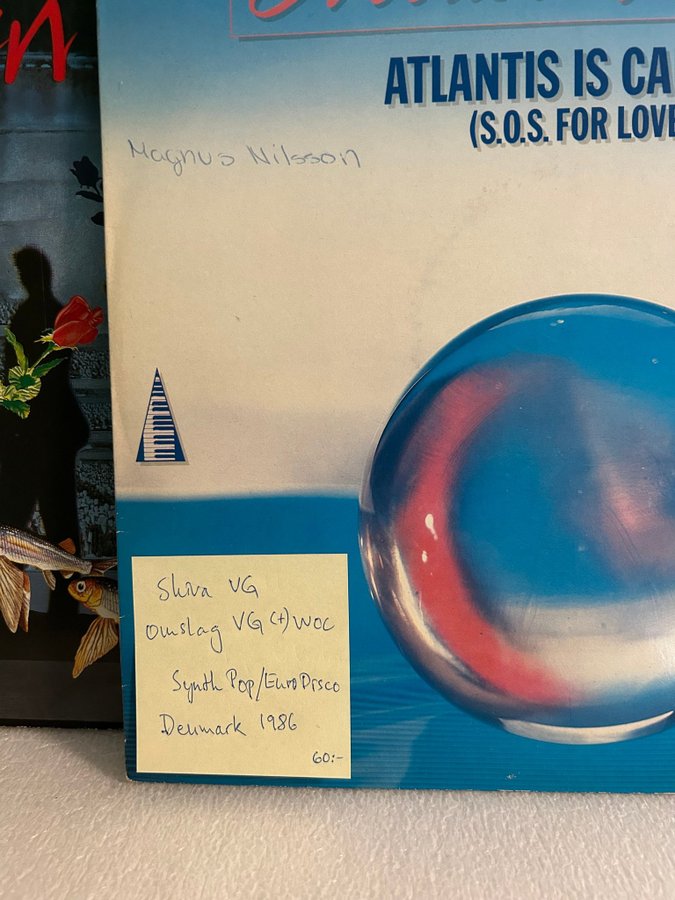 ATLANTIS IS CA
(S.O.S. FOR LOVE
Magnus Nilsson
Skiva VG
Omslag VG(+) WOC
Synth Pop/EuroDisco
Denmark 1986
60:-